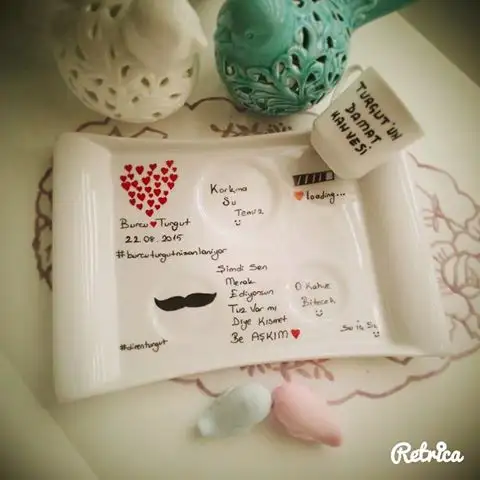 TURGUT'UN
DAMAT
KAHVESİ
Korkma
Su
Temiz
loading...
Burcu Turgut
22.08.2015
#burcuturgutnisanlaniyor
Şimdi Sen
Merak
Ediyorsun
Tuz Var mı
Diye Kısmet
Be AŞKIM
O Kahve
Bitecek
#direnturgut
Su iç Su
Retrica